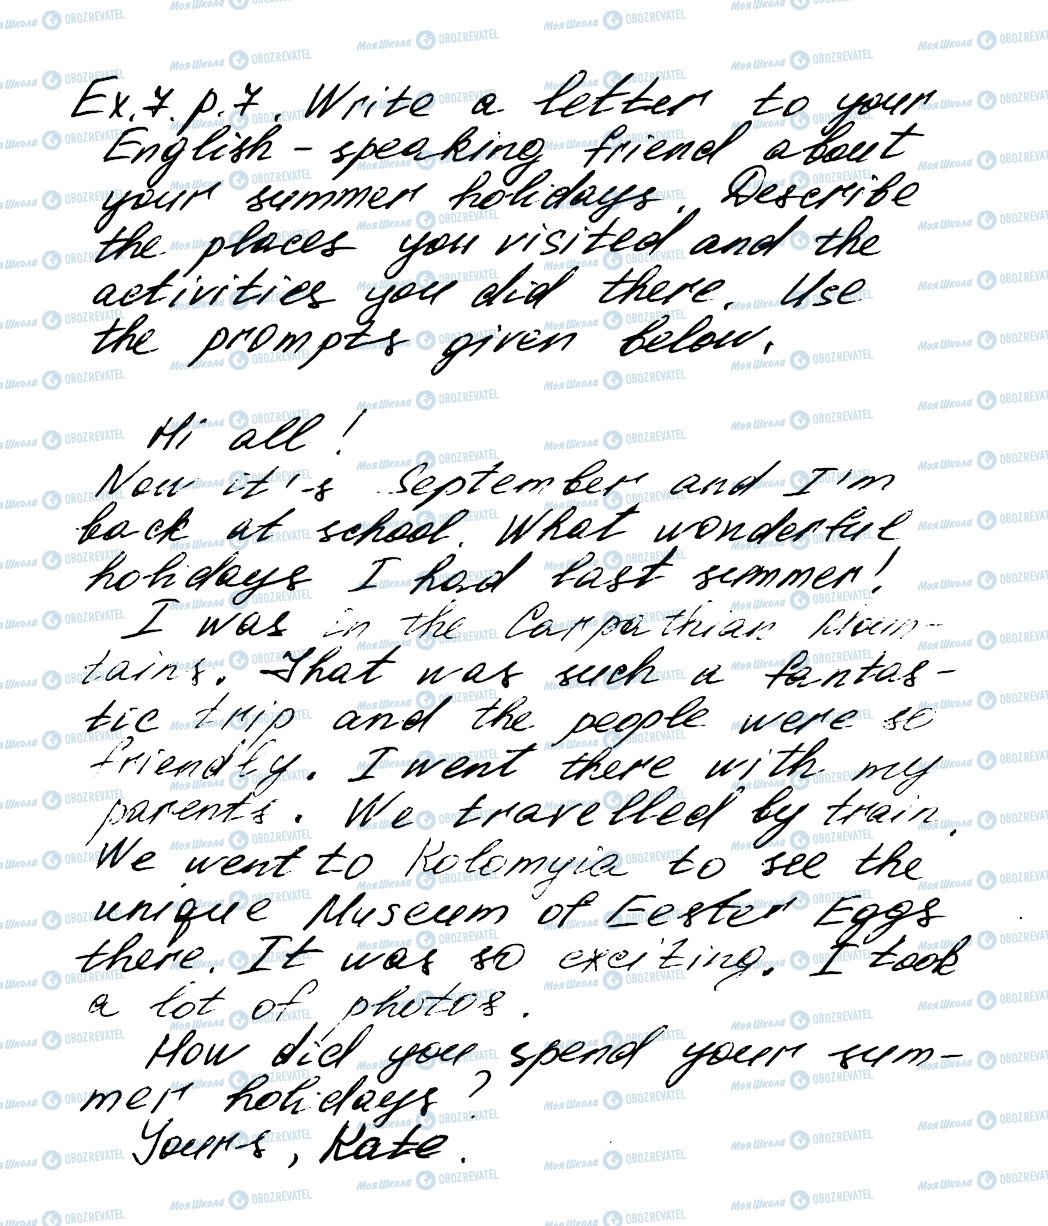 Ex.7.p.7. Write a letter to your
English - speaking friend about
your summer holidays. Describe
the places you visited and the
activities you did there. Use
the prompts given below.
Hi all!
Now it's September and I'm
back at school. What wonderful
holidays I had last summer!
I was in the Carpathian Moun-
tains. That was such a fantas-
tic trip and the people were so
friendly. I went there with my
parents. We travelled by train.
We went to Kolomyia to see the
unique Museum of Eester Eggs
there. It was so exciting. I took
a lot of photos.
How did you spend your sum-
mer holidays?
Yours, Kate.